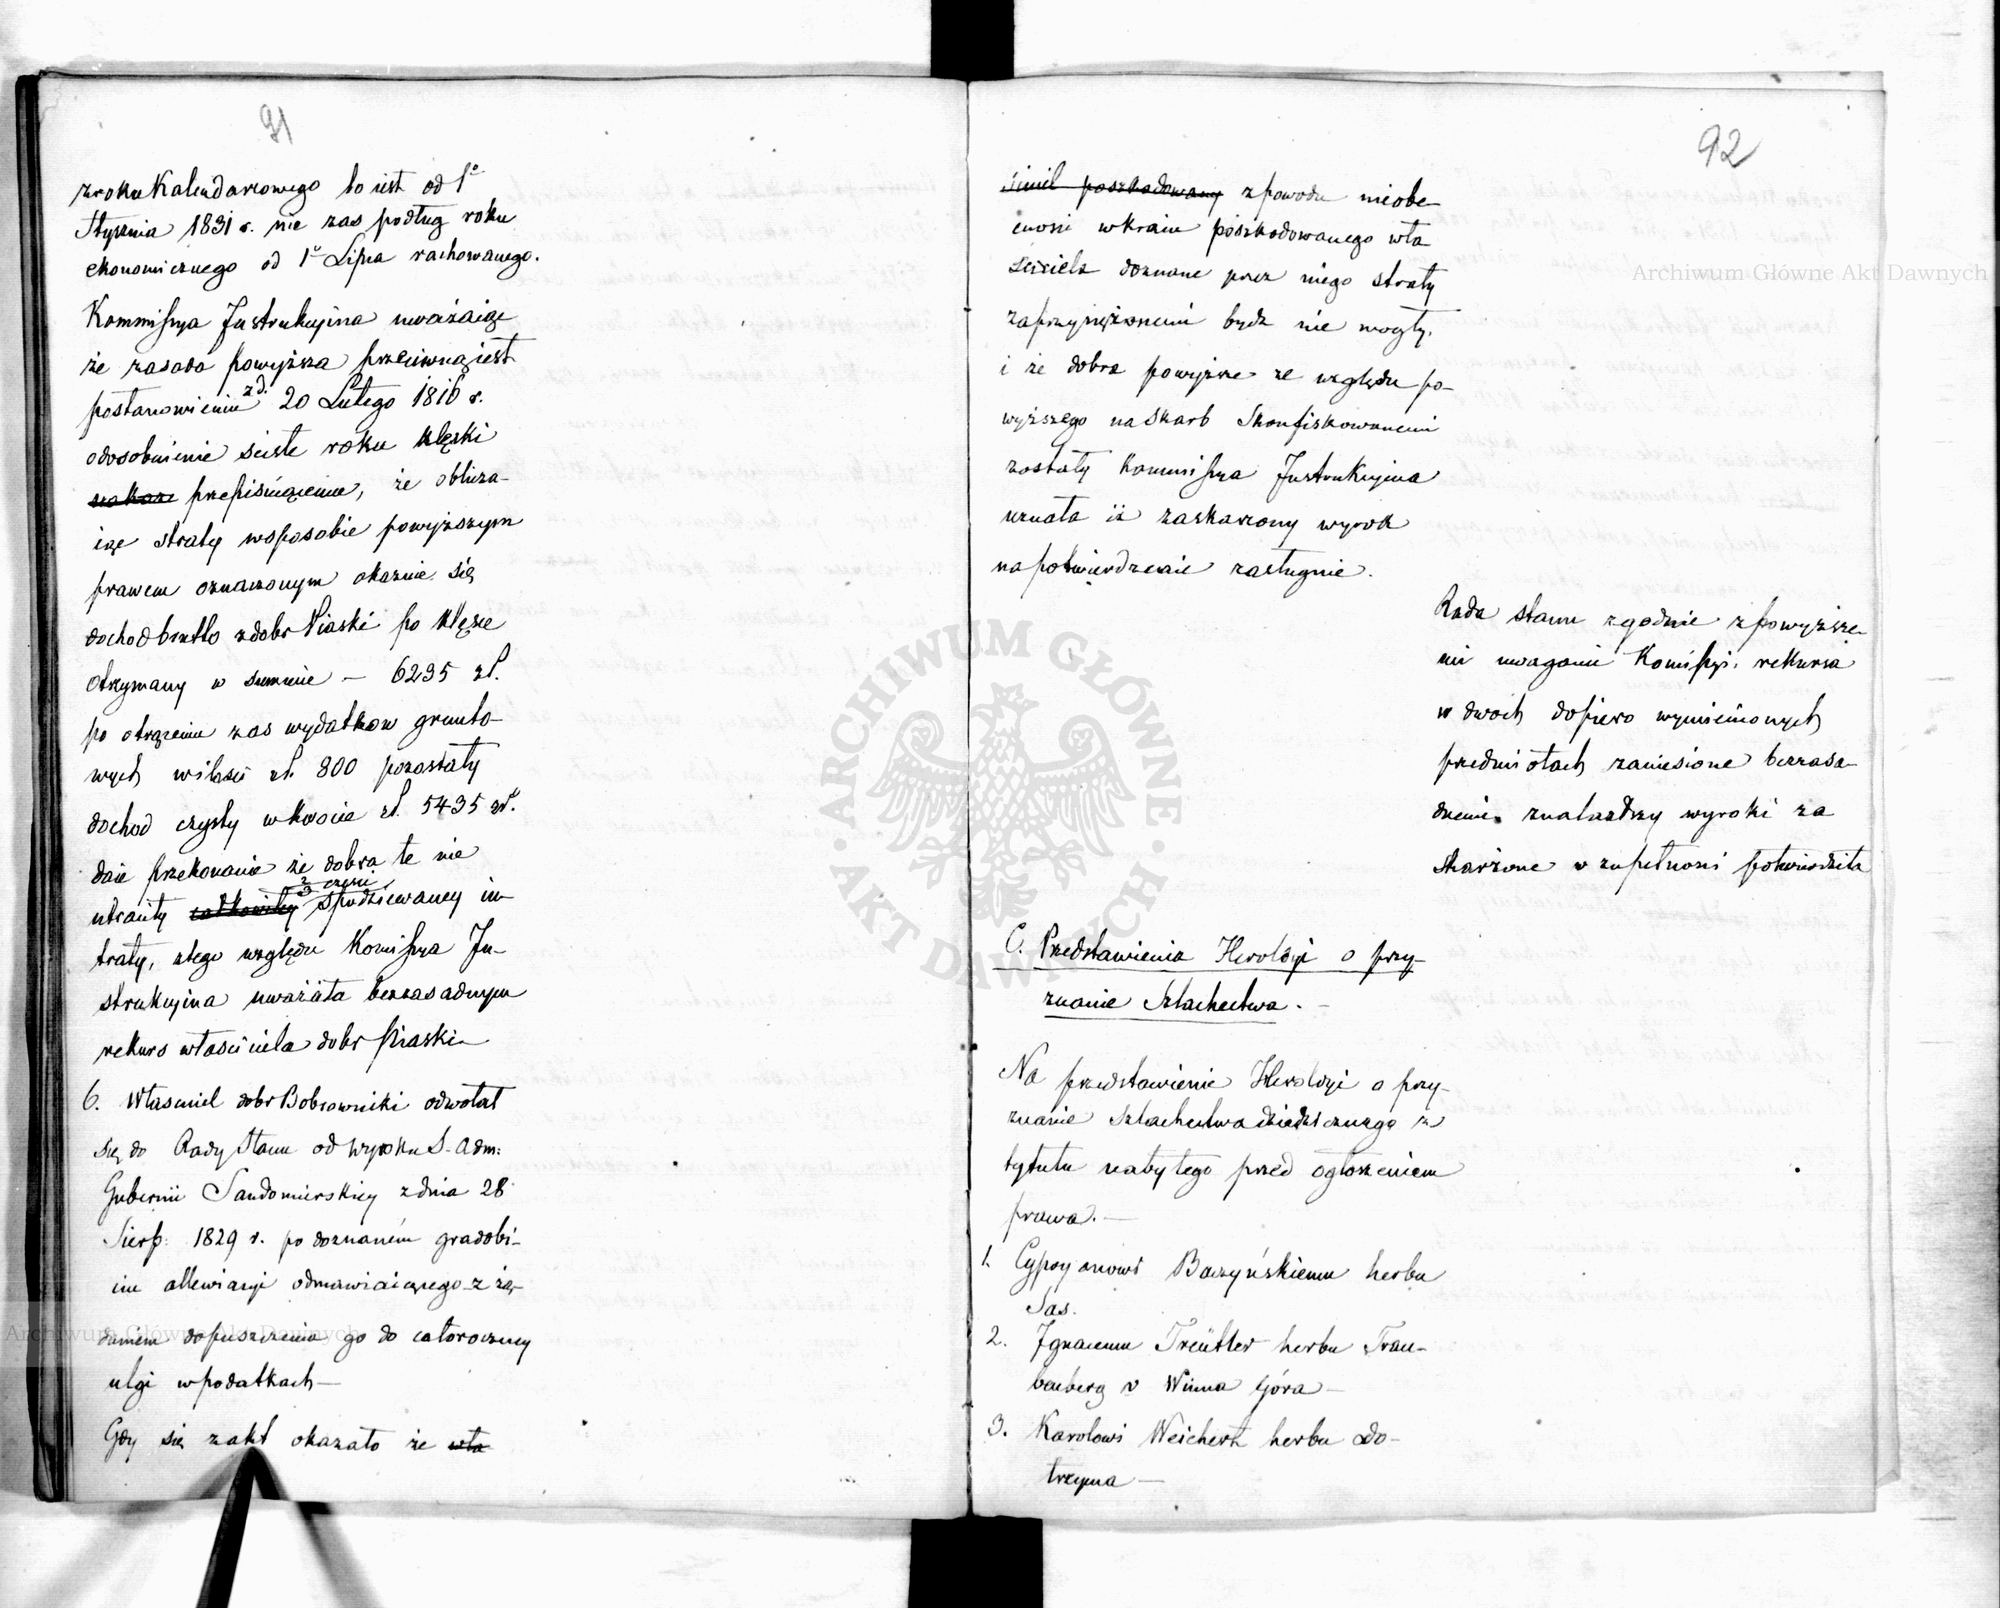 91
z roku Kalendarzowego to iest od 1o
Stycznia 1831 r. nie zas podług roku
ekonomicznego od 1o Lipca rachowanego.
Kommissya Instrukcyina uważaiąc
że zasada powyższa przeciwną iest
postanowieniu z d. 20 Lutego 1816 r.
odosobnienie sciste roku klęski
przepisuiącemu, że oblicza-
iąc straty w sposobie powyższym
prawem oznaczonym okazuie się
dochod brutto z dobr Piaski po klęsce
otrzymany w summie – 6235 zł.
po otrąceniu zas wydatkow grunto-
wych w ilości zł. 800 pozostały
dochod czysty w kwocie zł. 5435 zł.
daie przekonanie że dobra te nie
utraciły całkowitey 2/3 części spodziewaney in-
traty, z tego względu Komissya In-
strukcyina uważała bezzasadnym
rekurs właściciela dobr Piaski –
6. Własciciel dobr Bobrowniki odwołał
się do Rady Stanu od wyroku S. Adm:
Gubernii Sandomierskiey z dnia 28
Sierp: 1829 r. po doznaném gradobi-
ciu allewiacyi odmawiaiącego z żą-
daniem dopuszczenia go do całoroczney
ulgi w podatkach –
Gdy się z akt okazało że wła
92
sciciel poszkodowany z powodu nieobe-
cności w kraiu poszkodowanego wła
sciciela doznane przez niego straty
zaprzysiężonemi bydz nie mogły.
i że dobra powyższe ze względu po-
wyższego na Skarb Skonfiskowanemi
zostały Kommissya Instrukcyina
uznała iż zaskarżony wyrok
na potwierdzenie zasługuie.
Rada Stanu zgodnie z powyższe-
mi uwagami Komissyi, rekursa
w dwoch dopiero wymienionych
przedmiotach zaniesione bezzasa-
dnemi znalazłszy wyroki za
skarżone w zupełności potwierdziła
C. Przedstawienia Heroldyi o przy-
znanie Szlachectwa. –
Na przedstawienie Heroldyi o przy-
znanie Szlachectwa dziedzicznego z
tytułu nabytego przed ogłoszeniem
prawa. –
1. Cypryanowi Baczyńskiemu herbu
Sas.
2. Ignacemu Treütler herbu Trau-
benberg v Winna Góra –
3. Karolowi Weichert herbu Do-
trzyma –
Archiwum Główne Akt Dawnych
Archiwum Główne Akt Dawnych
· ARCHIWUM GŁÓWNE · AKT DAWNYCH